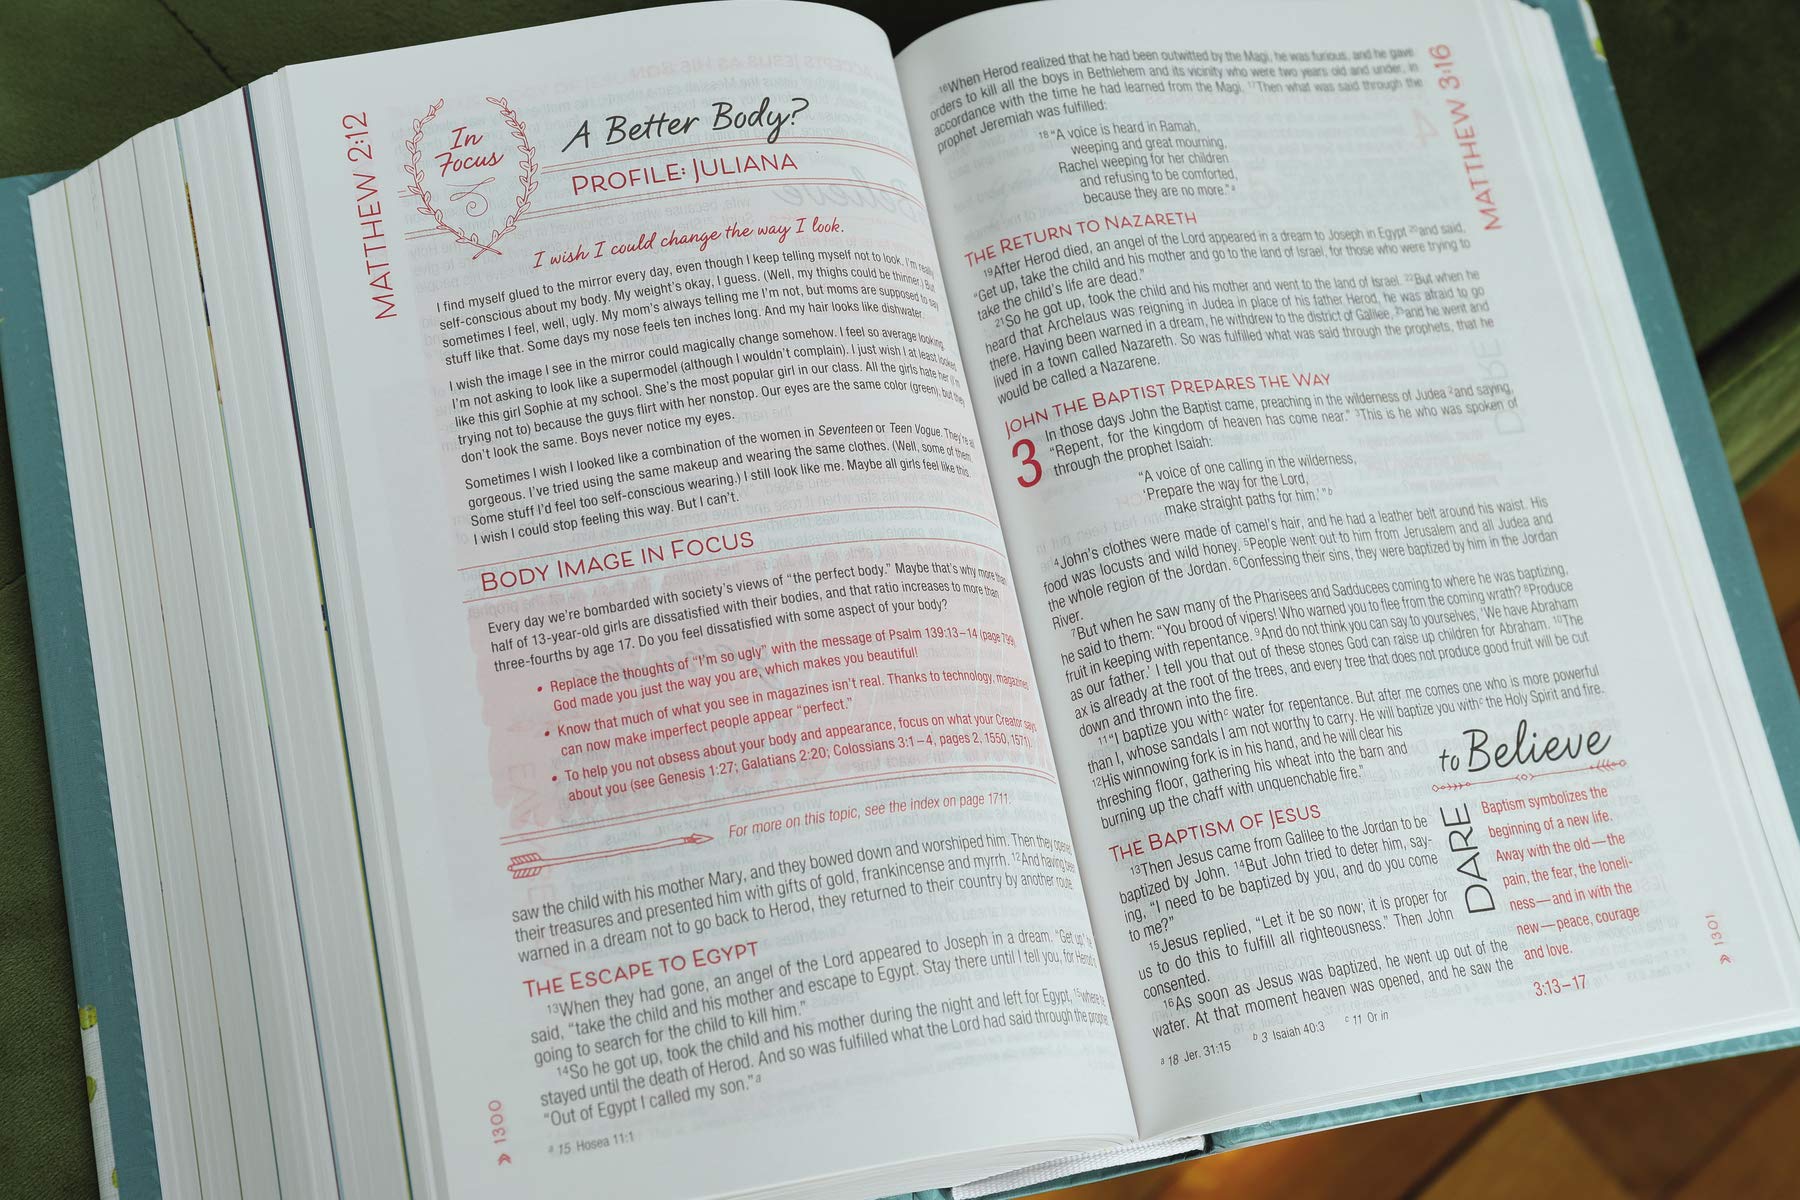 MATTHEW 2:12
In
Focus
A Better Body?
PROFILE: JULIANA
I wish I could change the way I look.
I find myself glued to the mirror every day, even though I keep telling myself not to look. I'm really
self-conscious about my body. My weight's okay, I guess. (Well, my thighs could be thinner.) But
sometimes I feel, well, ugly. My mom's always telling me I'm not, but moms are supposed to say
stuff like that. Some days my nose feels ten inches long. And my hair looks like dishwater.
I wish the image I see in the mirror could magically change somehow. I feel so average looking.
I'm not asking to look like a supermodel (although I wouldn't complain). I just wish I at least looked
like this girl Sophie at my school. She's the most popular girl in our class. All the girls hate her (I'm
trying not to) because the guys flirt with her nonstop. Our eyes are the same color (green), but they
don't look the same. Boys never notice my eyes.
Sometimes I wish I looked like a combination of the women in Seventeen or Teen Vogue. They're all
gorgeous. I've tried using the same makeup and wearing the same clothes. (Well, some of them.
Some stuff I'd feel too self-conscious wearing.) I still look like me. Maybe all girls feel like this.
I wish I could stop feeling this way. But I can't.
BODY IMAGE IN FOCUS
Every day we're bombarded with society's views of "the perfect body." Maybe that's why more than
half of 13-year-old girls are dissatisfied with their bodies, and that ratio increases to more than
three-fourths by age 17. Do you feel dissatisfied with some aspect of your body?
• Replace the thoughts of "I'm so ugly" with the message of Psalm 139:13–14 (page 799).
God made you just the way you are, which makes you beautiful!
• Know that much of what you see in magazines isn't real. Thanks to technology, magazines
can now make imperfect people appear "perfect."
• To help you not obsess about your body and appearance, focus on what your Creator says
about you (see Genesis 1:27; Galatians 2:20; Colossians 3:1–4, pages 2, 1550, 1571).
For more on this topic, see the index on page 1711.
saw the child with his mother Mary, and they bowed down and worshiped him. Then they opened
their treasures and presented him with gifts of gold, frankincense and myrrh. 12And having been
warned in a dream not to go back to Herod, they returned to their country by another route.
THE ESCAPE TO EGYPT
13When they had gone, an angel of the Lord appeared to Joseph in a dream. "Get up," he
said, "take the child and his mother and escape to Egypt. Stay there until I tell you, for Herod is
going to search for the child to kill him."
14So he got up, took the child and his mother during the night and left for Egypt, 15where he
stayed until the death of Herod. And so was fulfilled what the Lord had said through the prophet:
"Out of Egypt I called my son."a
a 15 Hosea 11:1
1300
MATTHEW 3:16
16When Herod realized that he had been outwitted by the Magi, he was furious, and he gave
orders to kill all the boys in Bethlehem and its vicinity who were two years old and under, in
accordance with the time he had learned from the Magi. 17Then what was said through the
prophet Jeremiah was fulfilled:
18 "A voice is heard in Ramah,
weeping and great mourning,
Rachel weeping for her children
and refusing to be comforted,
because they are no more."a
THE RETURN TO NAZARETH
19After Herod died, an angel of the Lord appeared in a dream to Joseph in Egypt 20and said,
"Get up, take the child and his mother and go to the land of Israel, for those who were trying to
take the child's life are dead."
21So he got up, took the child and his mother and went to the land of Israel. 22But when he
heard that Archelaus was reigning in Judea in place of his father Herod, he was afraid to go
there. Having been warned in a dream, he withdrew to the district of Galilee, 23and he went and
lived in a town called Nazareth. So was fulfilled what was said through the prophets, that he
would be called a Nazarene.
JOHN THE BAPTIST PREPARES THE WAY
3 In those days John the Baptist came, preaching in the wilderness of Judea 2and saying,
"Repent, for the kingdom of heaven has come near." 3This is he who was spoken of
through the prophet Isaiah:
"A voice of one calling in the wilderness,
'Prepare the way for the Lord,
make straight paths for him.'"b
4John's clothes were made of camel's hair, and he had a leather belt around his waist. His
food was locusts and wild honey. 5People went out to him from Jerusalem and all Judea and
the whole region of the Jordan. 6Confessing their sins, they were baptized by him in the Jordan
River.
7But when he saw many of the Pharisees and Sadducees coming to where he was baptizing,
he said to them: "You brood of vipers! Who warned you to flee from the coming wrath? 8Produce
fruit in keeping with repentance. 9And do not think you can say to yourselves, 'We have Abraham
as our father.' I tell you that out of these stones God can raise up children for Abraham. 10The
ax is already at the root of the trees, and every tree that does not produce good fruit will be cut
down and thrown into the fire.
11"I baptize you withc water for repentance. But after me comes one who is more powerful
than I, whose sandals I am not worthy to carry. He will baptize you withc the Holy Spirit and fire.
12His winnowing fork is in his hand, and he will clear his
threshing floor, gathering his wheat into the barn and
burning up the chaff with unquenchable fire."
THE BAPTISM OF JESUS
13Then Jesus came from Galilee to the Jordan to be
baptized by John. 14But John tried to deter him, say-
ing, "I need to be baptized by you, and do you come
to me?"
15Jesus replied, "Let it be so now; it is proper for
us to do this to fulfill all righteousness." Then John
consented.
16As soon as Jesus was baptized, he went up out of the
water. At that moment heaven was opened, and he saw the
DARE
to Believe
Baptism symbolizes the
beginning of a new life.
Away with the old—the
pain, the fear, the loneli-
ness—and in with the
new—peace, courage
and love.
3:13–17
a 18 Jer. 31:15 b 3 Isaiah 40:3 c 11 Or in
1301